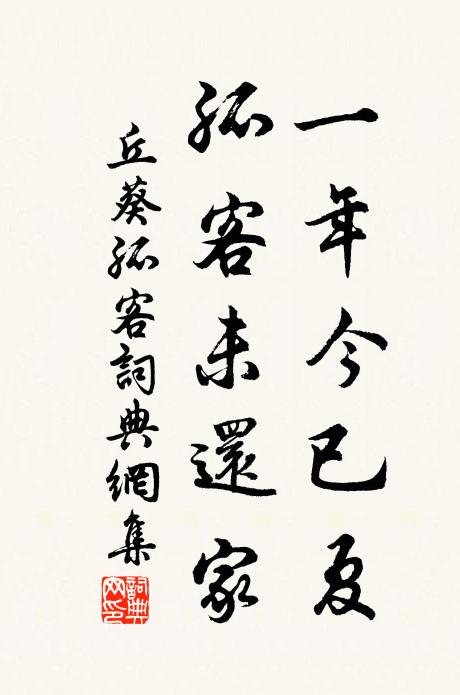 一年今已夏
孤客未還家
丘葵孤客詞典網集
詞典网印